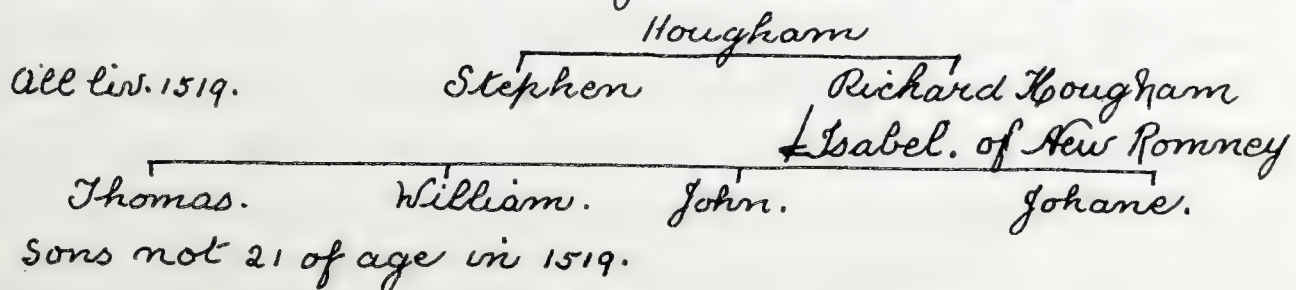 Hougham
all liv. 1519. Stephen Richard Hougham
Isabel. of New Romney
Thomas. William. John. Johane.
Sons not 21 of age in 1519.